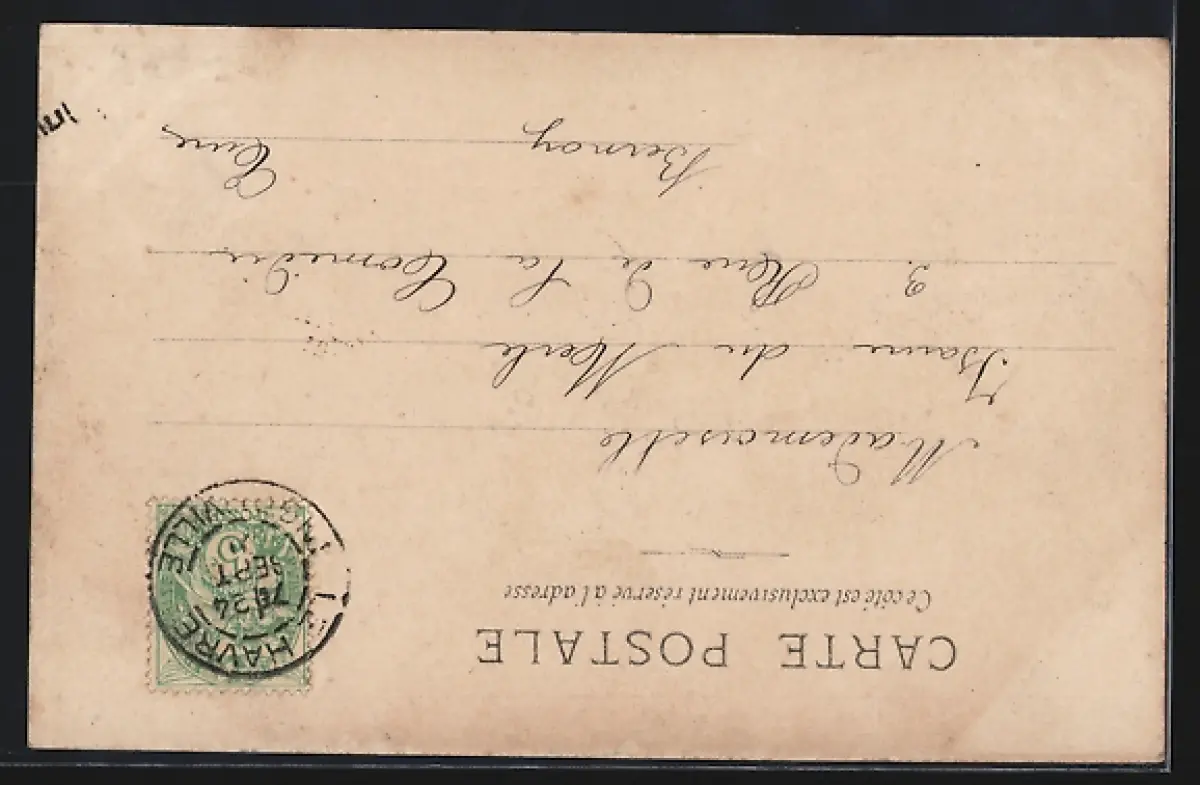 CARTE POSTALE
Ce côté est exclusivement réservé à l'adresse
Mademoiselle
Jeanne du Merle
3. Rue de la Comédie
Bernay Eure
HAVRE
24
SEPT
VILLE